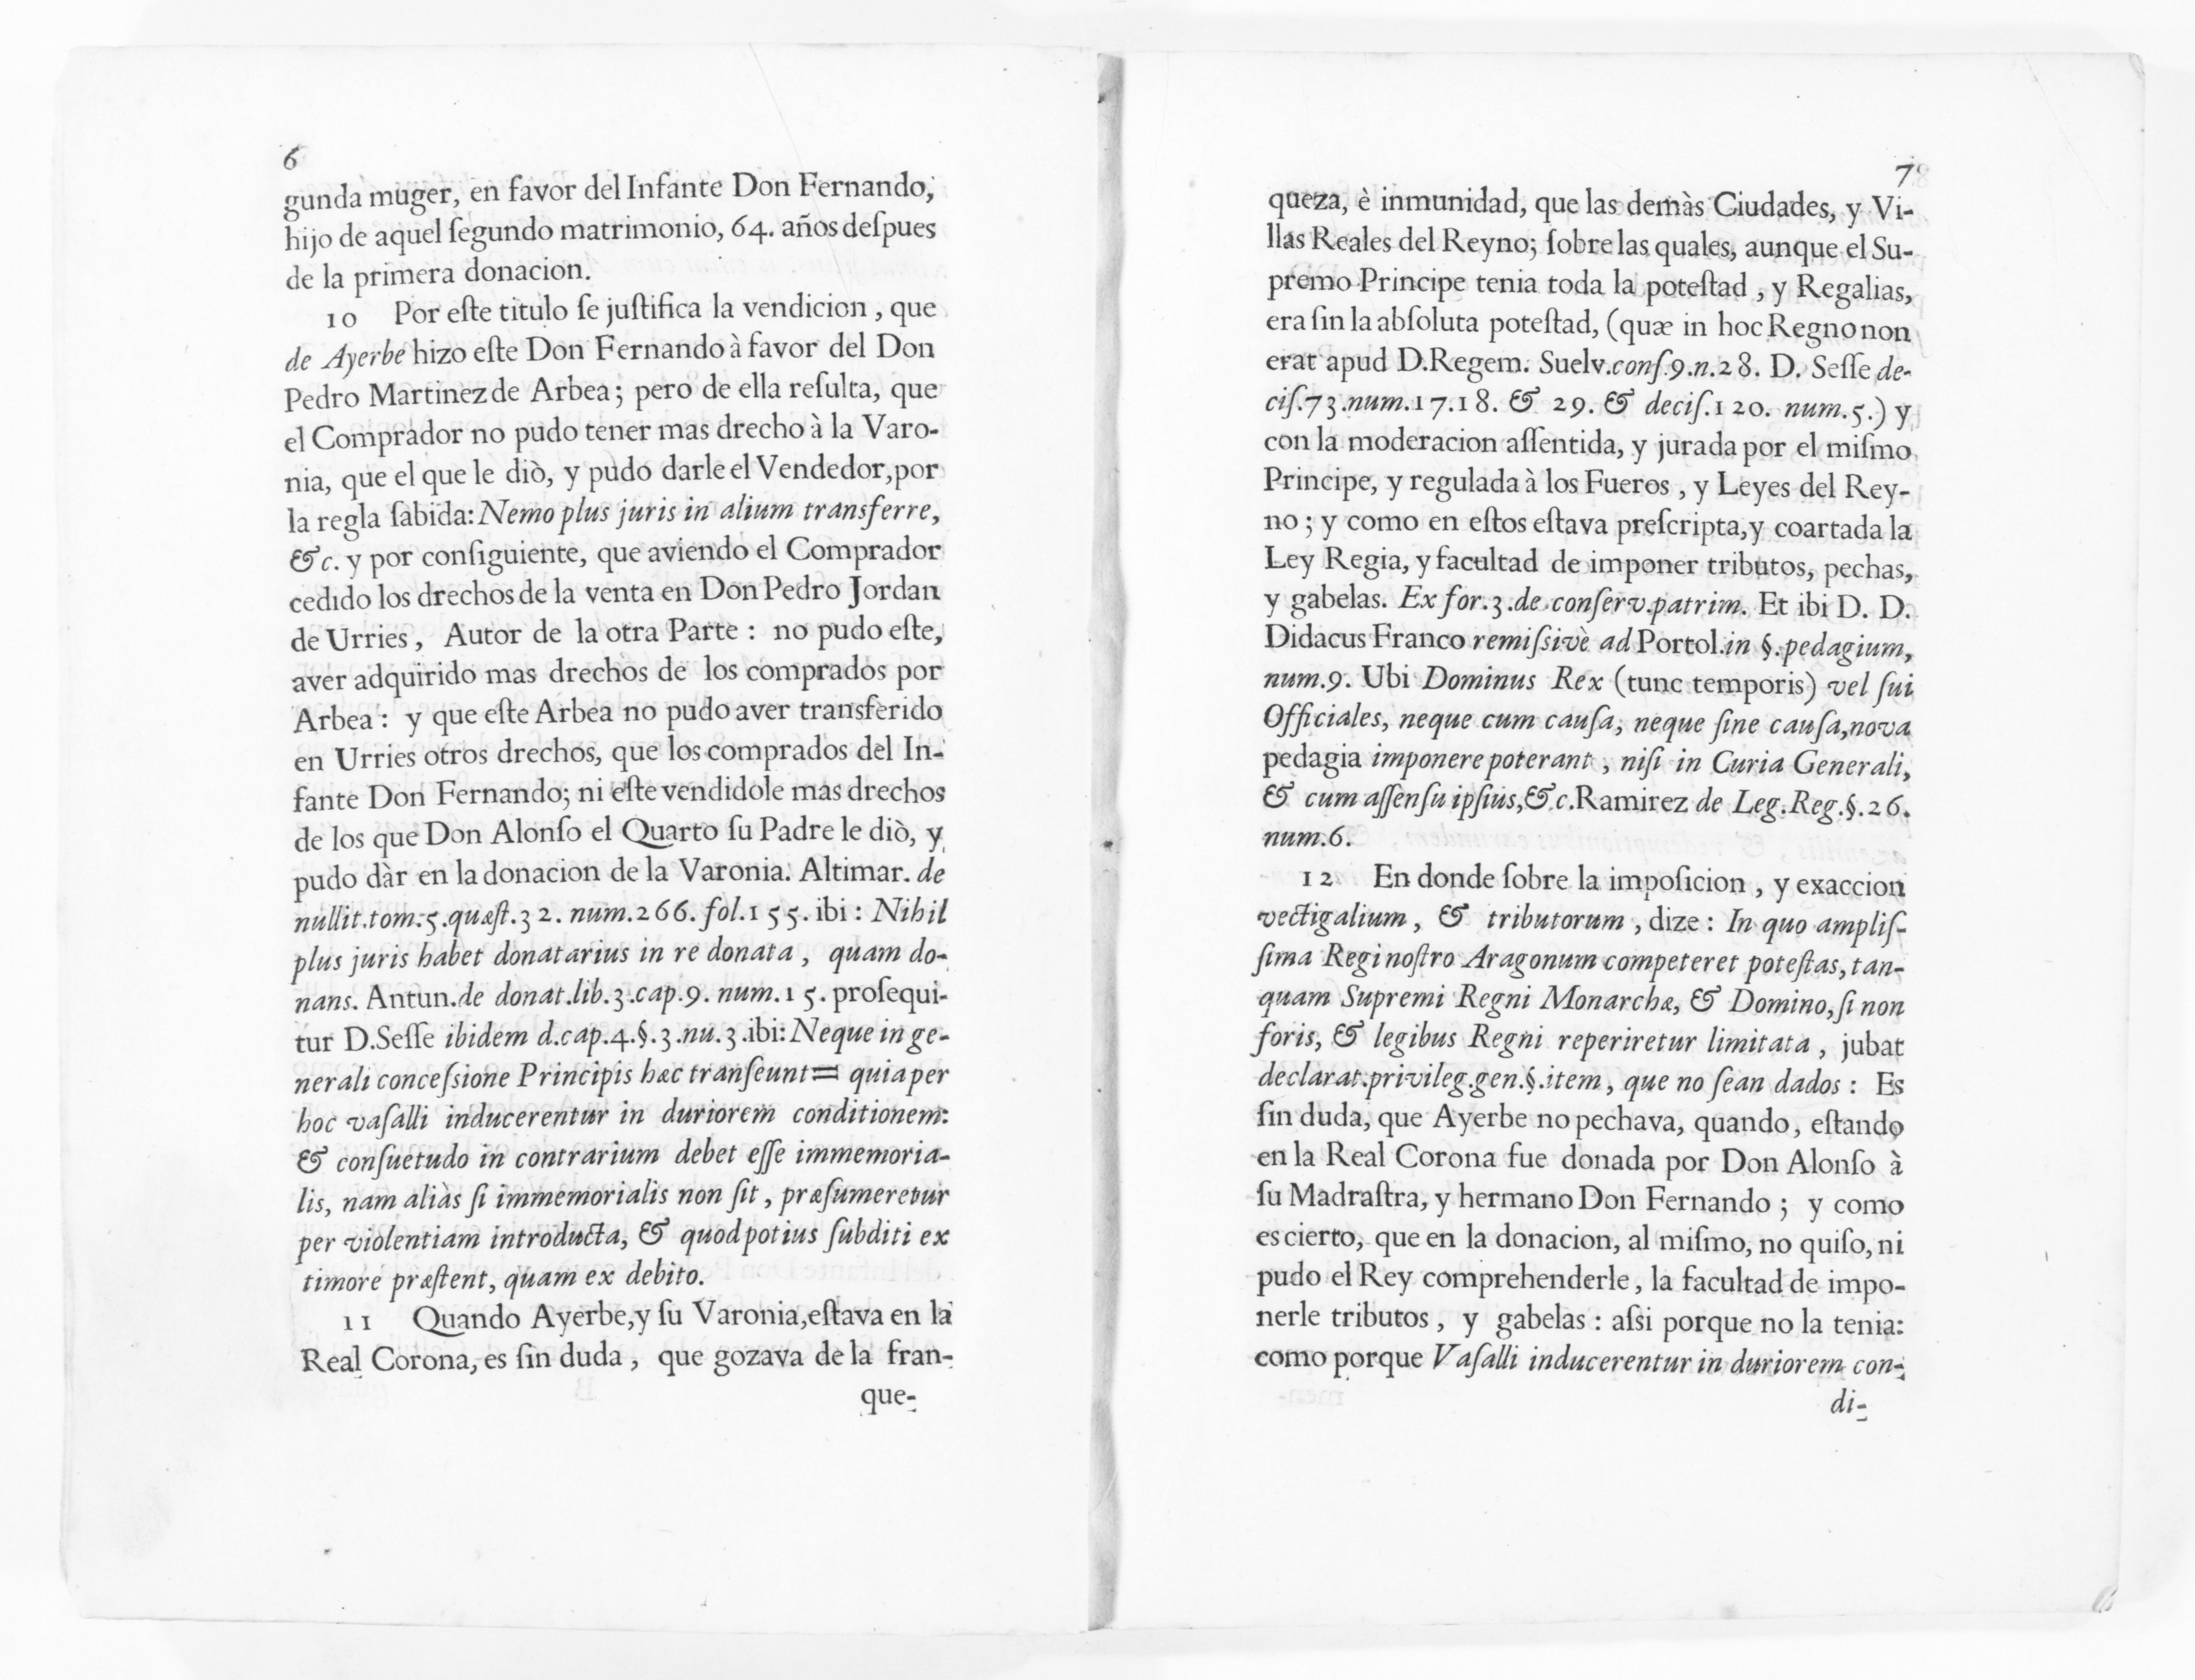 6
gunda muger, en favor del Infante Don Fernando,
hijo de aquel ſegundo matrimonio, 64. años deſpues
de la primera donacion.
10 Por eſte titulo ſe juſtifica la vendicion, que
de Ayerbe hizo eſte Don Fernando à favor del Don
Pedro Martinez de Arbea; pero de ella reſulta, que
el Comprador no pudo tener mas drecho à la Varo-
nia, que el que le diò, y pudo darle el Vendedor, por
la regla ſabida: Nemo plus juris in alium transferre,
&c. y por conſiguiente, que aviendo el Comprador
cedido los drechos de la venta en Don Pedro Jordan
de Urries, Autor de la otra Parte: no pudo eſte,
aver adquirido mas drechos de los comprados por
Arbea: y que eſte Arbea no pudo aver transferido
en Urries otros drechos, que los comprados del In-
fante Don Fernando; ni eſte vendidole mas drechos
de los que Don Alonſo el Quarto ſu Padre le diò, y
pudo dàr en la donacion de la Varonia. Altimar. de
nullit. tom. 5. quæſt. 32. num. 266. fol. 155. ibi: Nihil
plus juris habet donatarius in re donata, quam do-
nans. Antun. de donat. lib. 3. cap. 9. num. 15. proſequi-
tur D. Seſſe ibidem d. cap. 4. §. 3. nu. 3. ibi: Neque in ge-
nerali conceſsione Principis hæc tranſeunt= quia per
hoc vaſalli inducerentur in duriorem conditionem:
& conſuetudo in contrarium debet eſſe immemoria-
lis, nam aliàs ſi immemorialis non ſit, præſumeretur
per violentiam introducta, & quod potius ſubditi ex
timore præſtent, quam ex debito.
11 Quando Ayerbe, y ſu Varonia, eſtava en la
Real Corona, es ſin duda, que gozava de la fran-
que-
7
queza, è inmunidad, que las demàs Ciudades, y Vi-
llas Reales del Reyno; ſobre las quales, aunque el Su-
premo Principe tenia toda la poteſtad, y Regalias,
era ſin la abſoluta poteſtad, (quæ in hoc Regno non
erat apud D. Regem. Suelv. conſ. 9. n. 28. D. Seſſe de-
ciſ. 73. num. 17. 18. & 29. & deciſ. 120. num. 5.) y
con la moderacion aſſentida, y jurada por el miſmo
Principe, y regulada à los Fueros, y Leyes del Rey-
no; y como en eſtos eſtava preſcripta, y coartada la
Ley Regia, y facultad de imponer tributos, pechas,
y gabelas. Ex for. 3. de conſerv. patrim. Et ibi D. D.
Didacus Franco remiſsivè ad Portol. in §. pedagium,
num. 9. Ubi Dominus Rex (tunc temporis) vel ſui
Officiales, neque cum cauſa, neque ſine cauſa, nova
pedagia imponere poterant, niſi in Curia Generali,
& cum aſſenſu ipſius, &c. Ramirez de Leg. Reg. §. 26.
num. 6.
12 En donde ſobre la impoſicion, y exaccion
vectigalium, & tributorum, dize: In quo ampliſ-
ſima Regi noſtro Aragonum competeret poteſtas, tan-
quam Supremi Regni Monarchæ, & Domino, ſi non
foris, & legibus Regni reperiretur limitata, jubat
declarat. privileg. gen. §. item, que no ſean dados: Es
ſin duda, que Ayerbe no pechava, quando, eſtando
en la Real Corona fue donada por Don Alonſo à
ſu Madraſtra, y hermano Don Fernando; y como
es cierto, que en la donacion, al miſmo, no quiſo, ni
pudo el Rey comprehenderle, la facultad de impo-
nerle tributos, y gabelas: aſsi porque no la tenia:
como porque Vaſalli inducerentur in duriorem con-
di-